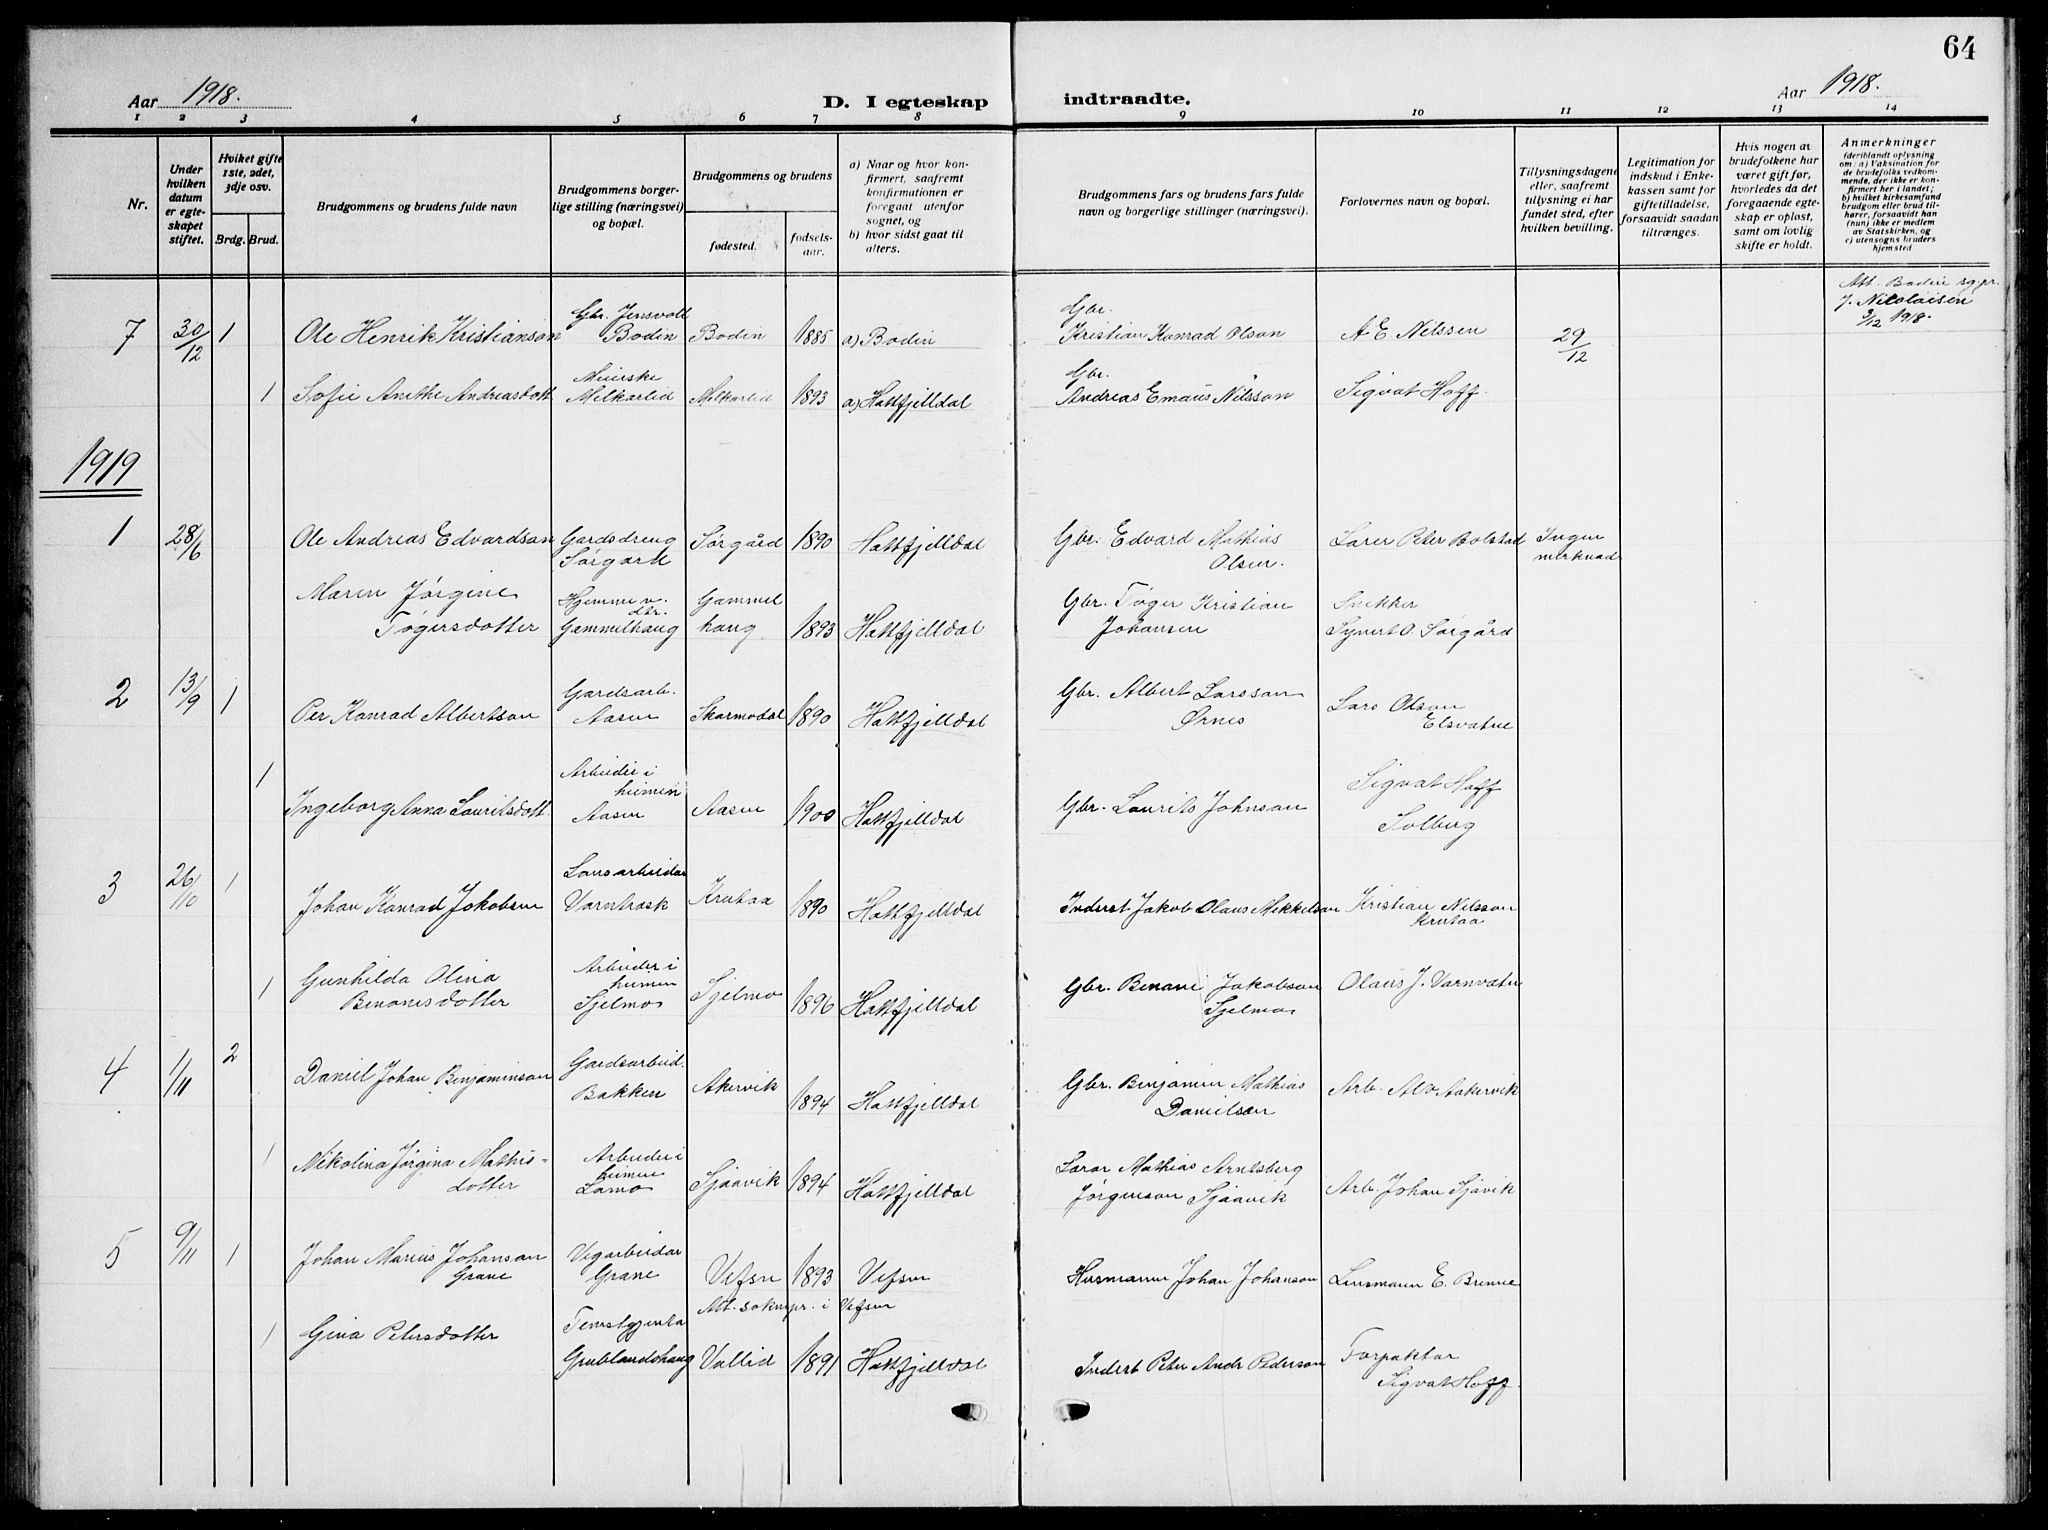 64
Aar 1918.
D. I egteskap
indtraadte.
Aar 1918.
1 2 3 4 5 6 7 8 9 10 11 12 13 14
Nr.
Under hvilken datum er egteskapet stiftet.
Hvilket gifte 1ste, 2det, 3dje osv.
Brdg. Brud.
Brudgommens og brudens fulde navn
Brudgommens borgerlige stilling (næringsvei) og bopæl.
Brudgommens og brudens
fødested.
fødselsaar.
a) Naar og hvor konfirmert, saafremt konfirmationen er foregaat utenfor sognet, og
b) hvor sidst gaat til alters.
Brudgommens fars og brudens fars fulde navn og borgerlige stillinger (næringsvei).
Forlovernes navn og bopæl.
Tillysningsdagene eller, saafremt tillysning ei har fundet sted, efter hvilken bevilling.
Legitimation for indskud i Enkekassen samt for giftetilladelse, forsaavidt saadan tiltrænges.
Hvis nogen av brudefolkene har været gift før, hvorledes da det foregaaende egteskap er opløst, samt om lovlig skifte er holdt.
Anmerkninger (deriblandt oplysning om: a) Vaksination for de brudefolks vedkommende, der ikke er konfirmert her i landet; b) hvilket kirkesamfund brudgom eller brud tilhører, forsaavidt han (hun) ikke er medlem av Statskirken, og c) utensogns bruders hjemsted
7 30/12 1 Ole Henrik Kristianson Gbr. Jensvoll Bodin Bodin 1885 a) Bodin Gbr. Kristian Konrad Olson A E Nilssen 29/12 Att. Bodin sgpr. J. Nikolaisen 3/12 1918.
1 Sofie Anethe Andreasdott Meierske Melkarlid Melkarlid 1893 a) Hattfjelldal Gbr. Andreas Emaus Nilsson Sigvat Hoff.
1919
1 28/6 Ole Andreas Edvardson Gardsdreng Sørgard Sørgård 1890 Hattfjelldal Gbr. Edvard Mathias Olsen. Lærer Peter Bolstad Ingen merknad
Maren Jørgine Tøgersdotter Hjemmev. dtr. Gammelhaug Gammelhaug 1893 Hattfjelldal Gbr. Tøger Kristian Johansen Snekker Synert O. Sørgård
2 13/9 1 Per Konrad Albertson Gardsarb. Aasen Skarmodal 1890 Hattfjelldal Gbr. Albert Larsson Ørnes Lars Olson Elsvatne
1 Ingeborg Anna Lauritsdott Arbeider i heimen Aasen Aasen 1900 Hattfjelldal Gbr. Laurits Johnson Sigvat Hoff Solberg
3 26/10 1 Johan Konrad Jakobsen Lausarbeidar Varntræsk Krutaa 1890 Hattfjelldal Inderst Jakob Olaus Mikkelson Kristian Nilsson Krutaa
1 Gunhilda Olina Benonisdotter Arbeider i heimen Sjelmo Sjelmo 1896 Hattfjelldal Gbr. Benoni Jakobson Sjelmo Olaus J. Varnvatn
4 1/11 2 Daniel Johan Benjaminson Gardsarbeid. Bakken Akervik 1894 Hattfjelldal Gbr. Benjamin Mathias Danielsen Arb. Alv Aakervik
1 Nikolina Jørgina Mathisdotter Arbeider i heimen Lamo Sjaavik 1894 Hattfjelldal Lærar Mathias Arntsberg Jørgenson Sjaavik Arb. Johan Sjåvik
5 9/11 1 Johan Marius Johanson Grane Vegarbeidar Grane Vefsn 1893 Vefsn Husmann Johan Johanson Lensmann E. Brenne
Att. soknepr. i Vefsn
1 Gina Petersdotter Tenestgjenta Grublandshaug Vallid 1891 Hattfjelldal Inderst Peter Andr Pederson Forpaktar Sigvat Hoff.